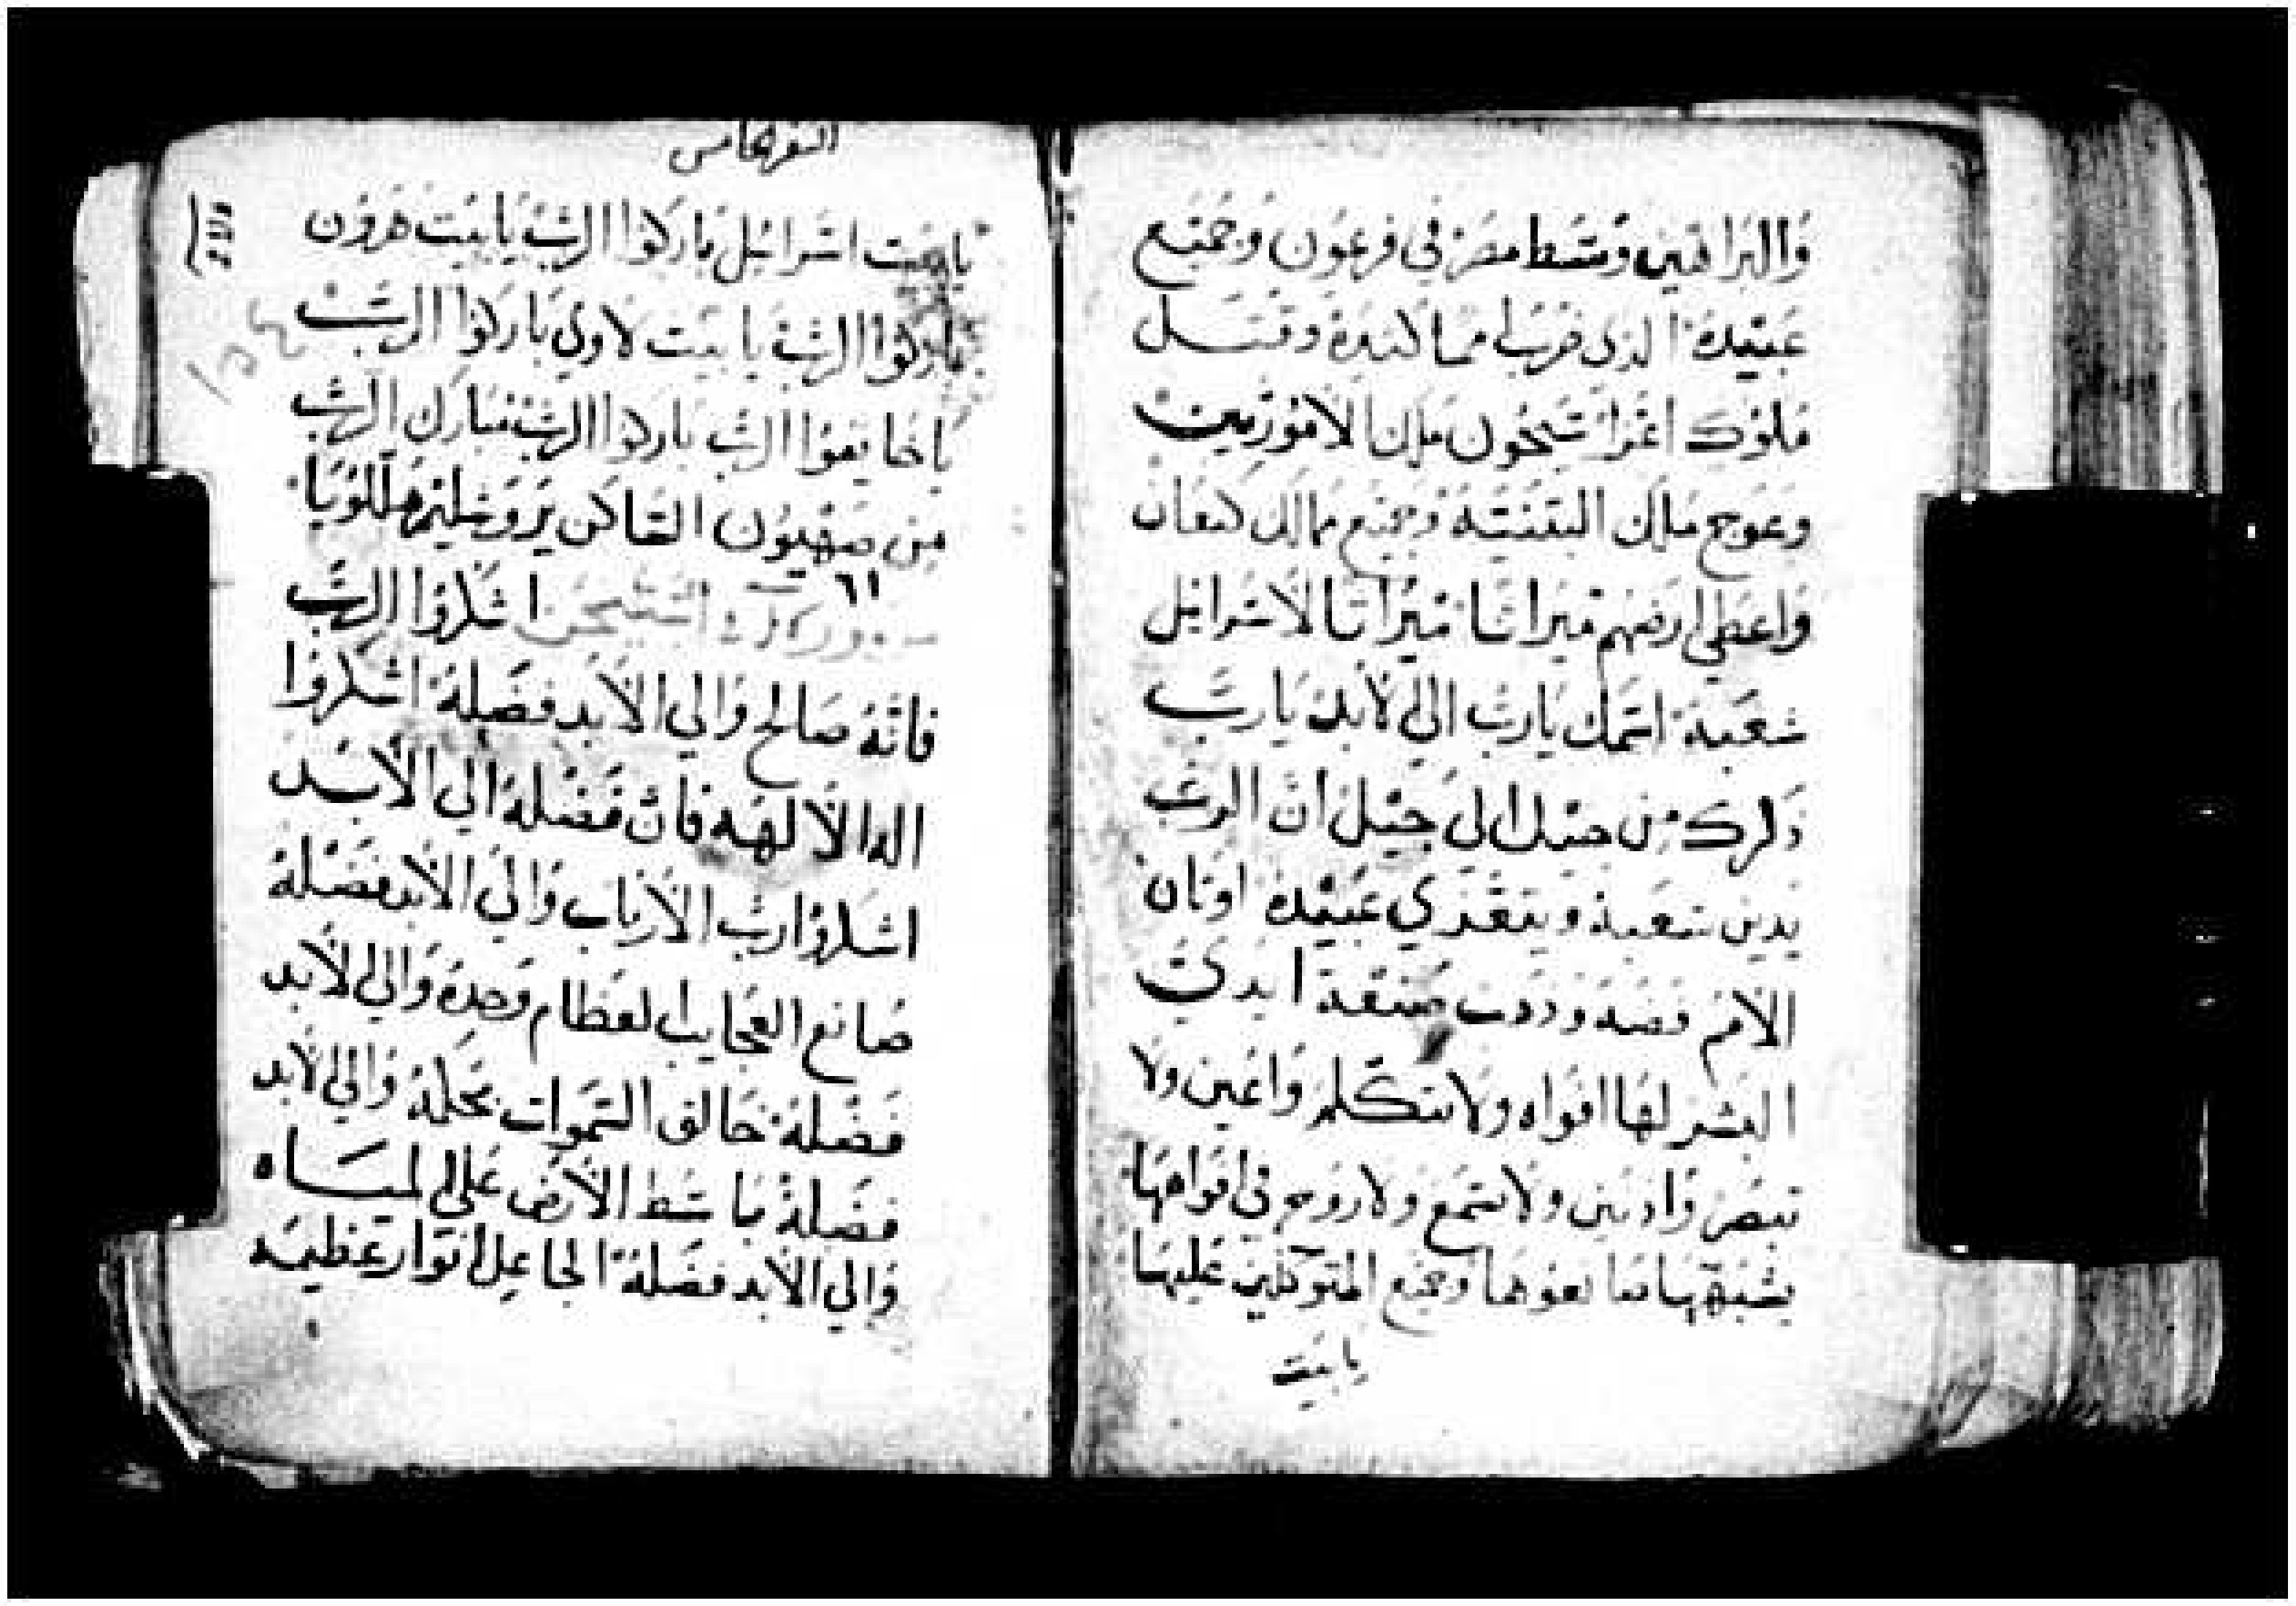 والبراهين وسط مصر في فرعون وجميع
عبيده الذي ضرب امما كثيرة وقتل
ملوك اعزا سيحون ملك الاموريين
وعوج ملك البثنية وجميع ممالك كنعان
واعطي ارضهم ميراثا ميراثا لاسرائيل
شعبه اسمك يارب الي لابد يارب
ذكرك من جيل الي جيل ان الرب
يدين شعبه ويتعزي عبيده اوثان
الامم فضه وذهب صنعة ايدي
البشر لها افواه ولا تتكلم واعين ولا
تبصر واذنين ولا تسمع ولا روح في افواهها
يشبهها صانعوها وجميع المتوكلين عليها
يا بيت
يا بيت اسرائيل باركوا الرب يا بيت هرون
باركوا الرب يا بيت لاوي باركوا الرب
يا خايفوا الرب باركوا الرب مبارك الرب
من صهيون الساكن يروشليم هللويا
اشكروا الرب
فانه صالح والي الابد فضله اشكروا
اله الالهه فان فضله الي الابد
اشكروا رب الارباب والي الابد فضله
صانع العجايب العظام وحده والي لابد
فضله خالق السموات بحكمه والي لابد
فضله باسط الارض علي المياه
والي الابد فضله الجاعل انوار عظيمه